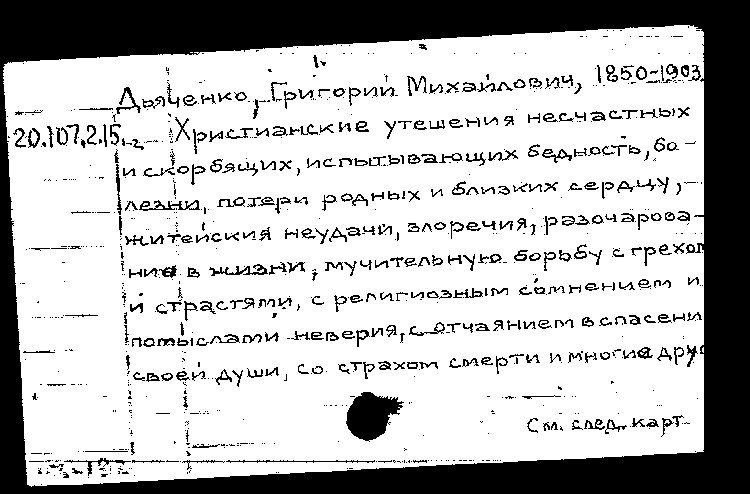 Дьяченко, Григорий Михайлович, 1850-1903
20.107.2.15 1-2 Христианские утешения несчастных
и скорбящих, испытывающих бедность, бо-
лезни, потери родных и близких сердцу,
житейския неудачи, злоречия, разочарова-
ние в жизни, мучительную борьбу с грехом
и страстями, с религиозным сомнением и
помыслами неверия, с отчаянием в спасени
своей души, со страхом смерти и многие друг
См. след. карт